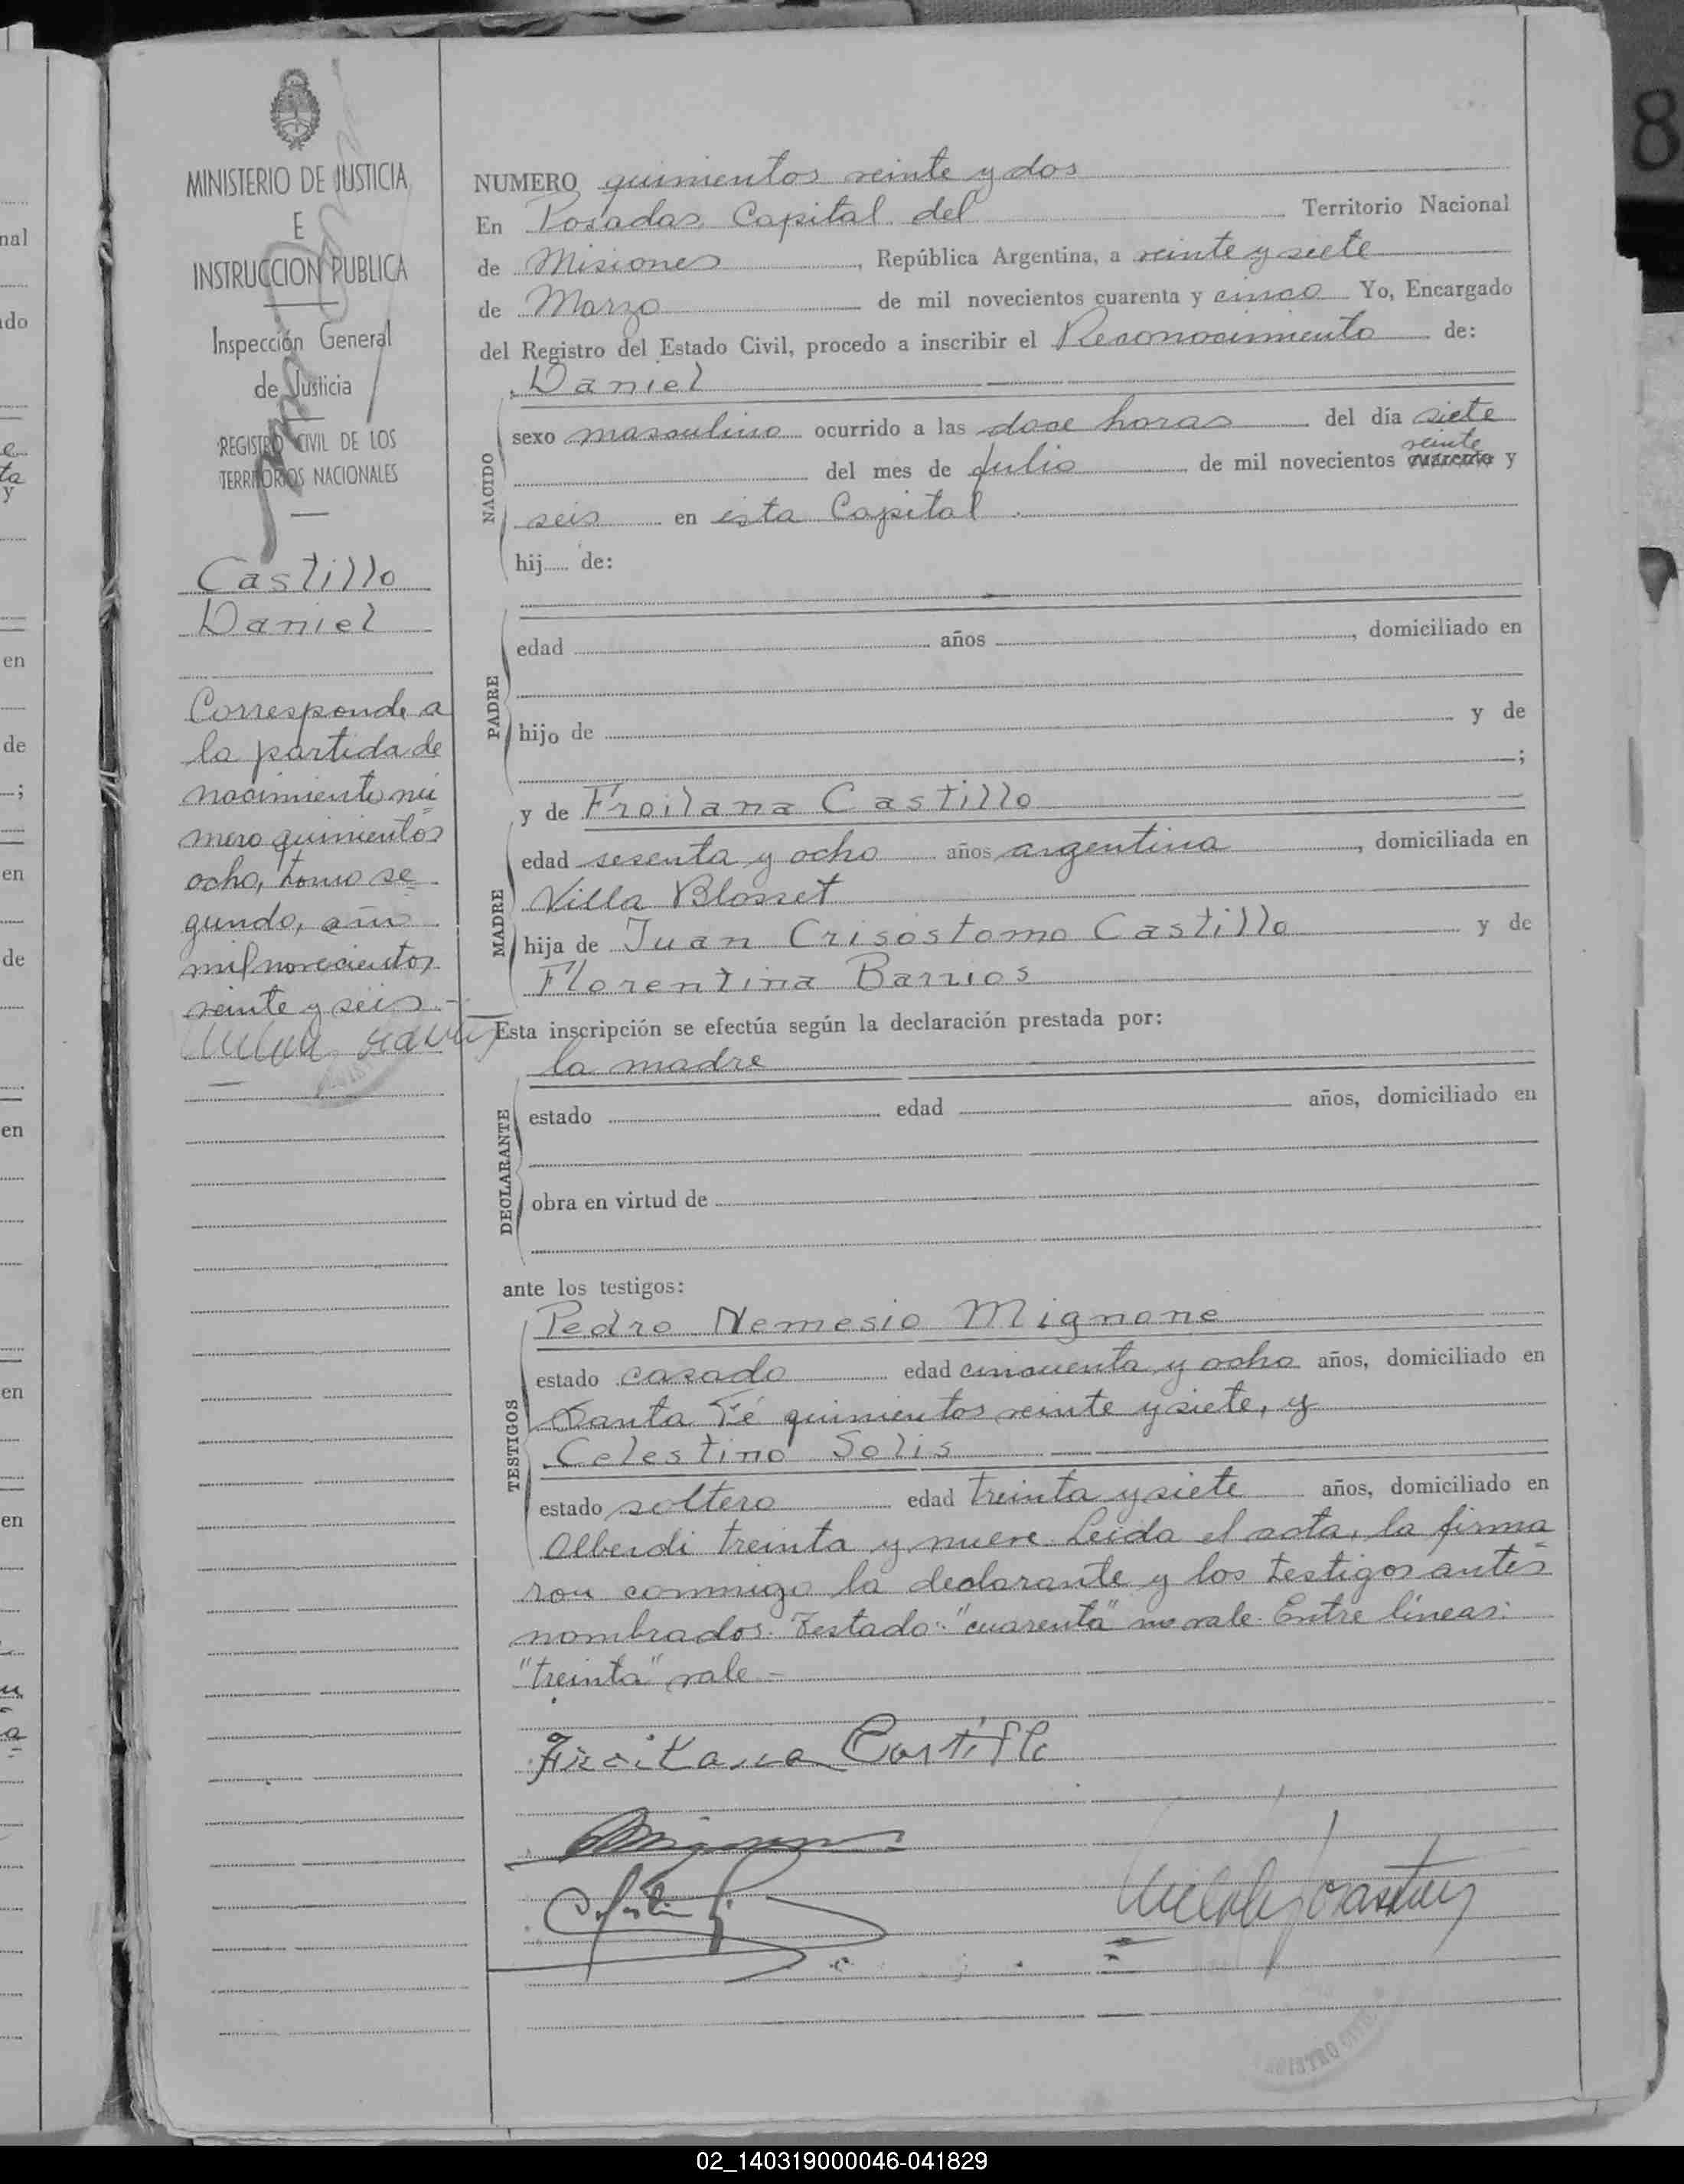 MINISTERIO DE JUSTICIA
E
INSTRUCCION PUBLICA
Inspección General
de Justicia
REGISTRO CIVIL DE LOS
TERRITORIOS NACIONALES
Castillo
Daniel
Corresponde a
la partida de
nacimiento nú
mero quinientos
ocho, tomo se
gundo, año
mil novecientos
veinte y seis.-
NUMERO quinientos veinte y dos
En Posadas Capital del Territorio Nacional
de Misiones, República Argentina, a veinte y siete
de Marzo de mil novecientos cuarenta y cinco Yo, Encargado
del Registro del Estado Civil, procedo a inscribir el Reconocimiento de:
Daniel
NACIDO
sexo masculino ocurrido a las doce horas del día siete
veinte
del mes de Julio de mil novecientos cuarenta y
seis en esta Capital.
hij..... de:
PADRE
edad años , domiciliado en
hijo de y de
;
MADRE
y de Froilana Castillo
edad sesenta y ocho años argentina, domiciliada en
Villa Blosset
hija de Juan Crisóstomo Castillo y de
Florentina Barrios
Esta inscripción se efectúa según la declaración prestada por:
la madre
DECLARANTE
estado edad años, domiciliado en
obra en virtud de
ante los testigos:
TESTIGOS
Pedro Nemesio Mignone
estado casado edad cincuenta y ocho años, domiciliado en
Santa Fé quinientos veinte y siete, y
Celestino Solis
estado soltero edad treinta y siete años, domiciliado en
Alberdi treinta y nueve. Leida el acta, la firma
ron conmigo la declarante y los testigos antes
nombrados. Testado: "cuarenta" no vale. Entre líneas:
"treinta" vale -
Froilana Castillo
REGISTRO CIVIL
02_140319000046-041829